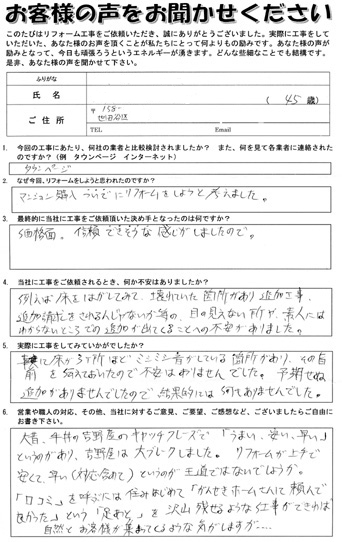 お客様の声をお聞かせください
このたびはリフォーム工事をご依頼いただき、誠にありがとうございました。実際に工事をして
いただいた、あなた様のお声を頂くことが私たちにとって何よりもの励みです。あなた様の声が
励みとなって、今日も頑張ろうというエネルギーが湧きます。どんな些細なことでも結構です。
是非、あなた様の声を聞かせて下さい。
ふりがな
氏 名
( 45 歳)
ご 住 所
〒158-
世田谷区
TEL Email
1. 今回の工事にあたり、何社の業者と比較検討されましたか? また、何を見て各業者に連絡された
のですか?(例 タウンページ インターネット)
タウンページ
2. なぜ今回、リフォームをしようと思われたのですか?
マンション購入 ついでにリフォームをしようと考えました。
3. 最終的に当社に工事をご依頼頂いた決め手となったのは何ですか?
価格面。信頼できそうな感じがしましたので。
4. 当社に工事をご依頼されるとき、何か不安はありましたか?
例えば床をはがしてみて、壊れていた箇所があり追加工事、
追加請求をされるんじゃないか等の、目の見えない所が、素人には
わからないところでの追加が出てくることへの不安がありました。
5. 実際に工事をしてみていかがでしたか?
床が3ヶ所ほどミシミシ音がしている箇所があり、その旨
を伝えておいたので不安はありませんでした。予期せぬ
追加がありませんでしたので、結果的には何でもありませんでした。
6. 営業や職人の対応、その他、当社に対するご意見、ご要望、ご感想など、ございましたらご自由に
お書き下さい。
大昔、牛丼の吉野屋のキャッチフレーズで「うまい、安い、早い」
というのがあり、吉野屋は大ブレークしました。リフォームが上手で
安くて、早い(対応含めて)というのが王道ではないでしょうか。
「口コミ」を呼ぶには住みはじめて「がんせきホームさんに頼んで
良かった」という「足あと」を沢山残せるような仕事ができれば
自然とお客様が集まってくるような気がしますが…